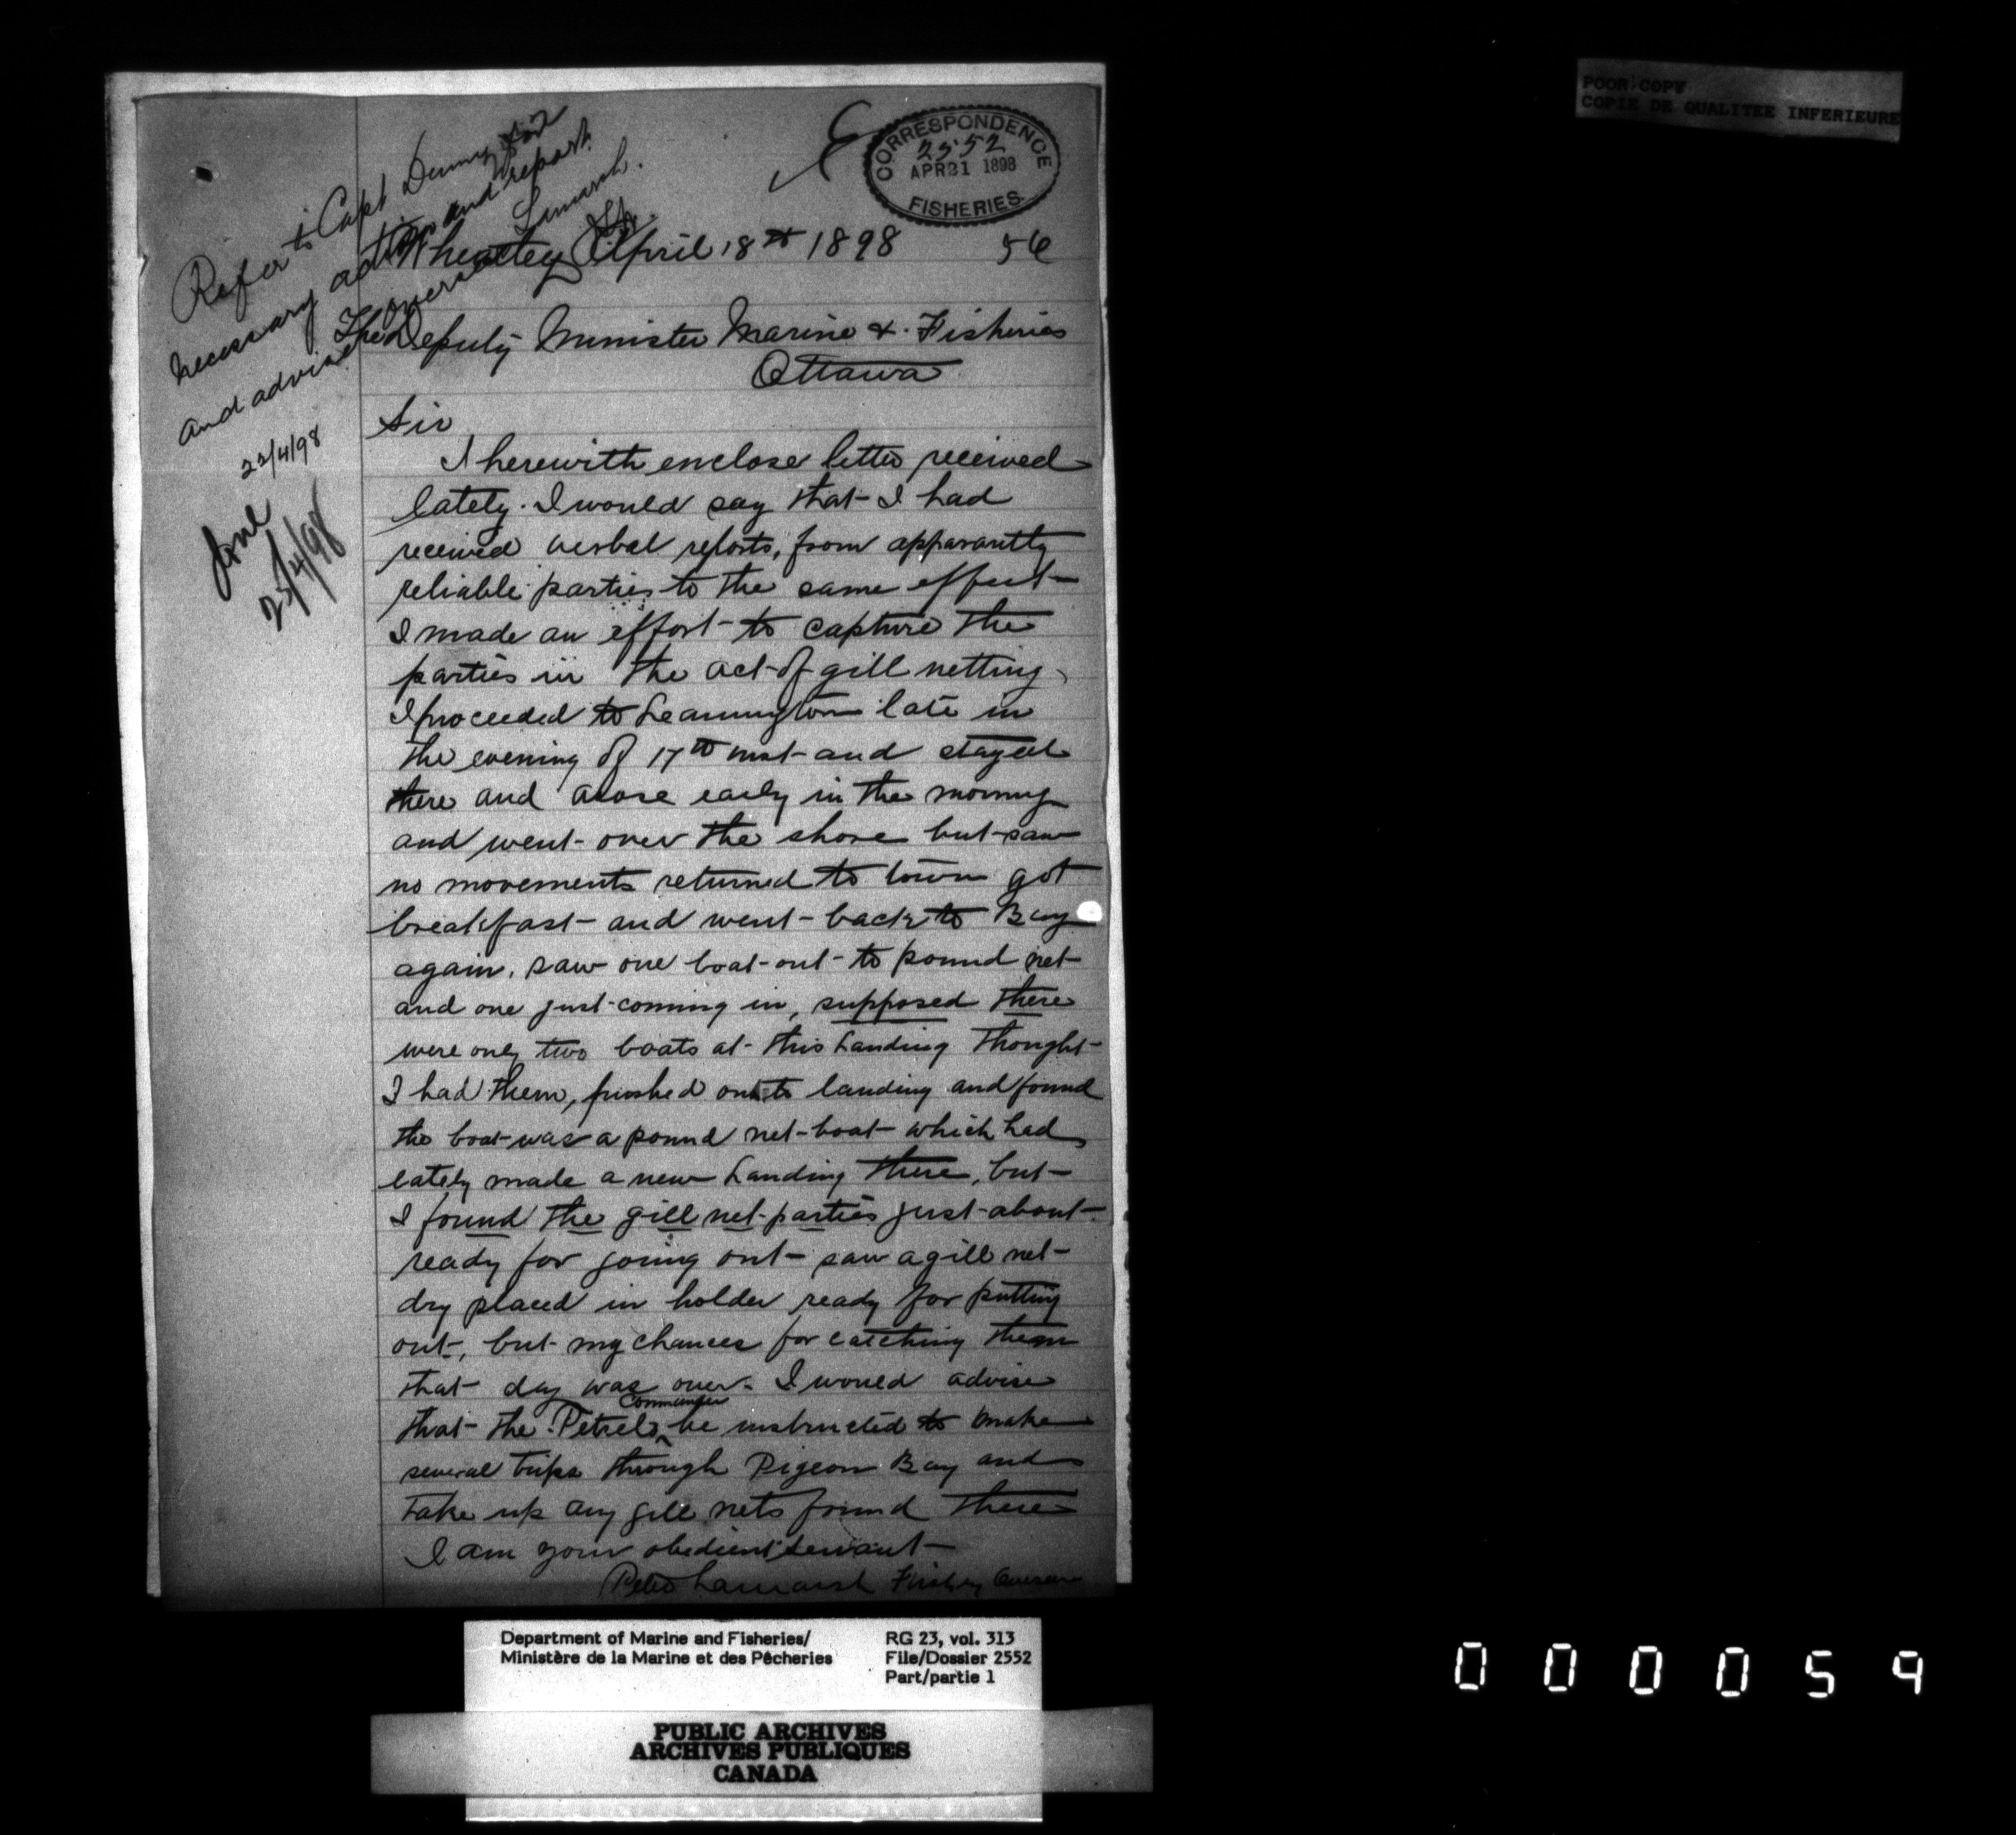 POOR COPY
COPIE DE QUALITEE INFERIEURE
CORRESPONDENCE
2552
APR 21 1898
FISHERIES
Refer to Capt Dunn for
necessary action and report
and advise Overseer Lamarsh.
22/4/98
done
23/4/98
Wheatley April 18th 1898
56
The Deputy Minister Marine &. Fisheries
Ottawa
Sir
I herewith enclose letter received
lately. I would say that I had
received verbal reports, from apparantly
reliable parties to the same effect
I made an effort to capture the
parties in the act of gill netting,
I proceeded to Leamington late in
the evening of 17th inst and stayed
there and arose early in the morning
and went over the shore but saw
no movements returned to town got
breakfast and went back to Bay
again. saw one boat out to pound net
and one just coming in, supposed there
were only two boats at this Landing thought
I had them, pushed out to landing and found
the boat was a pound net boat which had
lately made a new Landing there, but
I found the gill net parties just about
ready for going out saw a gill net
dry placed in holder ready for putting
out, but my chances for catching them
that day was over. I would advise
that the Petrels Commander be instructed to make
several trips through Pigeon Bay and
take up any gill nets found there
I am your obedient servant
Peter Lamarsh Fishery Overseer
Department of Marine and Fisheries/
Ministère de la Marine et des Pêcheries
RG 23, vol. 313
File/Dossier 2552
Part/partie 1
PUBLIC ARCHIVES
ARCHIVES PUBLIQUES
CANADA
000059